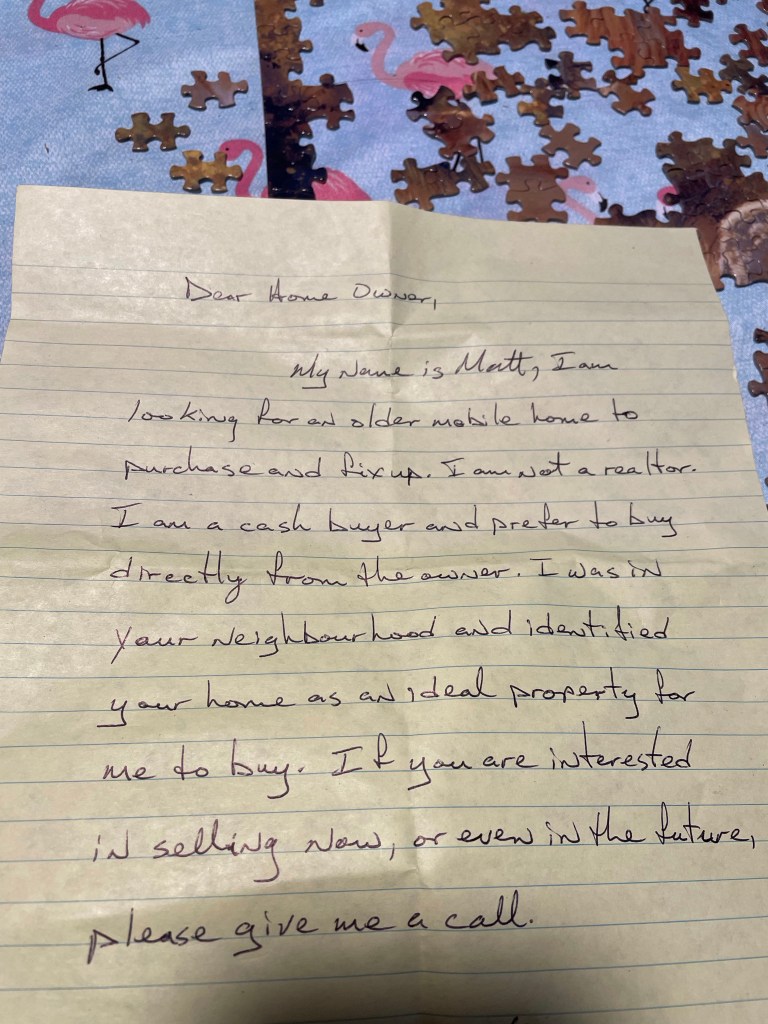 Dear Home Owner,
My Name is Matt, I am
looking for an older mobile home to
purchase and fix up. I am not a realtor.
I am a cash buyer and prefer to buy
directly from the owner. I was in
your Neighbourhood and identified
your home as an ideal property for
me to buy. If you are interested
in selling Now, or even in the future,
please give me a call.